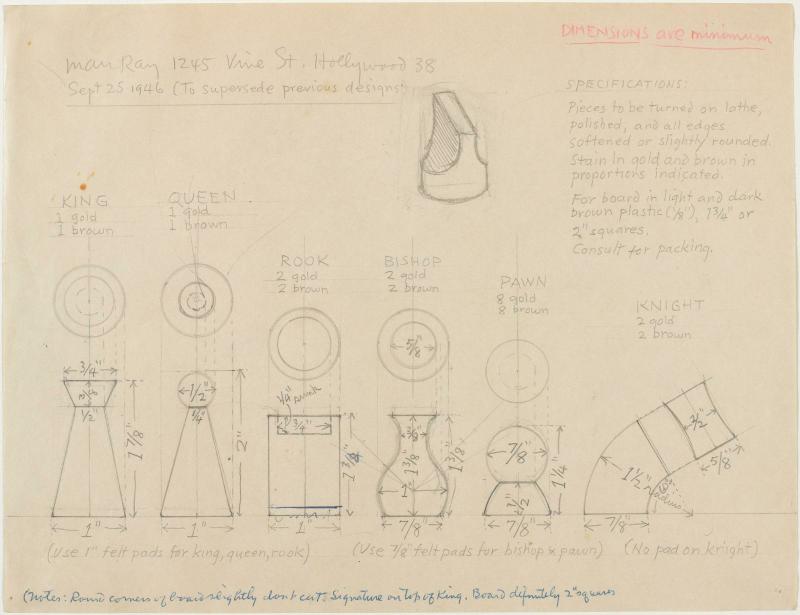 DIMENSIONS are minimum
Man Ray 1245 Vine St. Hollywood 38
Sept 25 1946 (To supersede previous designs)
SPECIFICATIONS:
Pieces to be turned on lathe,
polished, and all edges
softened or slightly rounded.
Stain in gold and brown in
proportions indicated.
For board in light and dark
brown plastic (1/8"), 1 3/4" or
2" squares.
Consult for packing.
KING
1 gold
1 brown
QUEEN
1 gold
1 brown
ROOK
2 gold
2 brown
BISHOP
2 gold
2 brown
PAWN
8 gold
8 brown
KNIGHT
2 gold
2 brown
3/4"
3/8"
1/2"
1 7/8"
1"
1/2"
1/4"
2"
1"
1/4" sunk
3/4"
1"
5/8"
1 3/8"
1"
1 3/8"
7/8"
7/8"
1/2"
1 1/4"
7/8"
5/8"
1 1/2"
radius
7/8"
(Use 1" felt pads for king, queen, rook)
(Use 7/8" felt pads for bishop & pawn)
(No pad on knight)
(Notes: Round corners of board slightly dont cut. Signature on top of King. Board definitely 2" squares